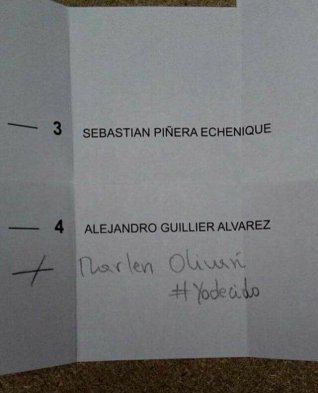 — 3 SEBASTIAN PIÑERA ECHENIQUE
— 4 ALEJANDRO GUILLIER ALVAREZ
+ Marlen Olivari
#Yodecido